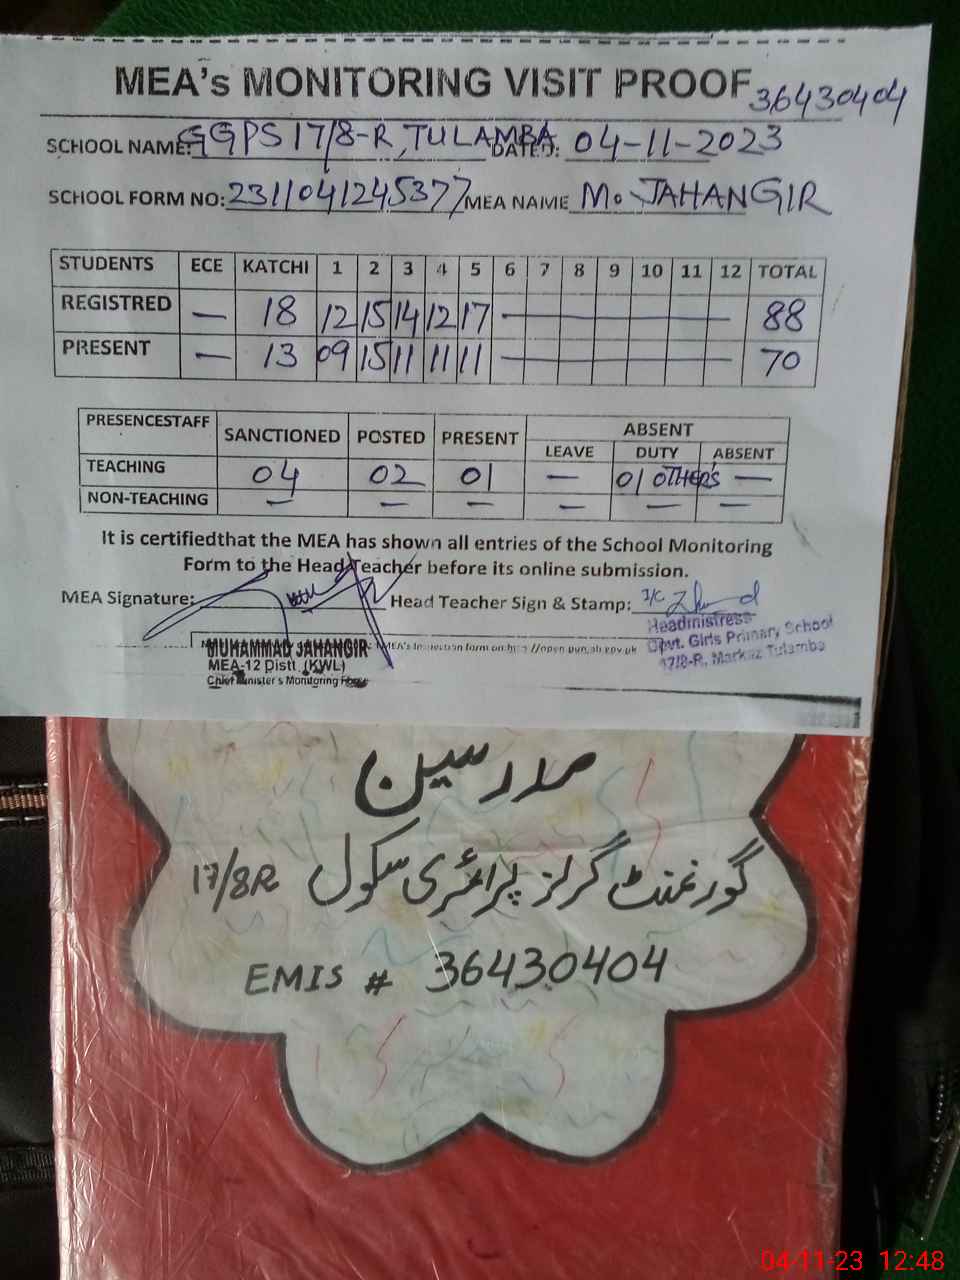 MEA's MONITORING VISIT PROOF 36430404
SCHOOL NAME: GGPS 17/8-R, TULAMBA DATED: 04-11-2023
SCHOOL FORM NO: 2311041245377 MEA NAME Mo JAHANGIR
STUDENTS ECE KATCHI 1 2 3 4 5 6 7 8 9 10 11 12 TOTAL
REGISTRED — 18 12 15 14 12 17 — 88
PRESENT — 13 09 15 11 11 11 — 70
PRESENCESTAFF SANCTIONED POSTED PRESENT ABSENT
LEAVE DUTY ABSENT
TEACHING 04 02 01 — 01 OTHERS —
NON-TEACHING — — — — — —
It is certifiedthat the MEA has shown all entries of the School Monitoring
Form to the Head Teacher before its online submission.
MEA Signature: Head Teacher Sign & Stamp: I/C
MUHAMMAD JAHANGIR
MEA-12 Distt. (KWL)
Chief Minister's Monitoring Force
MEA's Inspection form on http://open.punjab.gov.pk
Headmistress
Govt. Girls Primary School
17/8-R, Markaz Tulamba
مدرسین
گورنمنٹ گرلز پرائمری سکول 17/8R
EMIS # 36430404
04-11-23 12:48